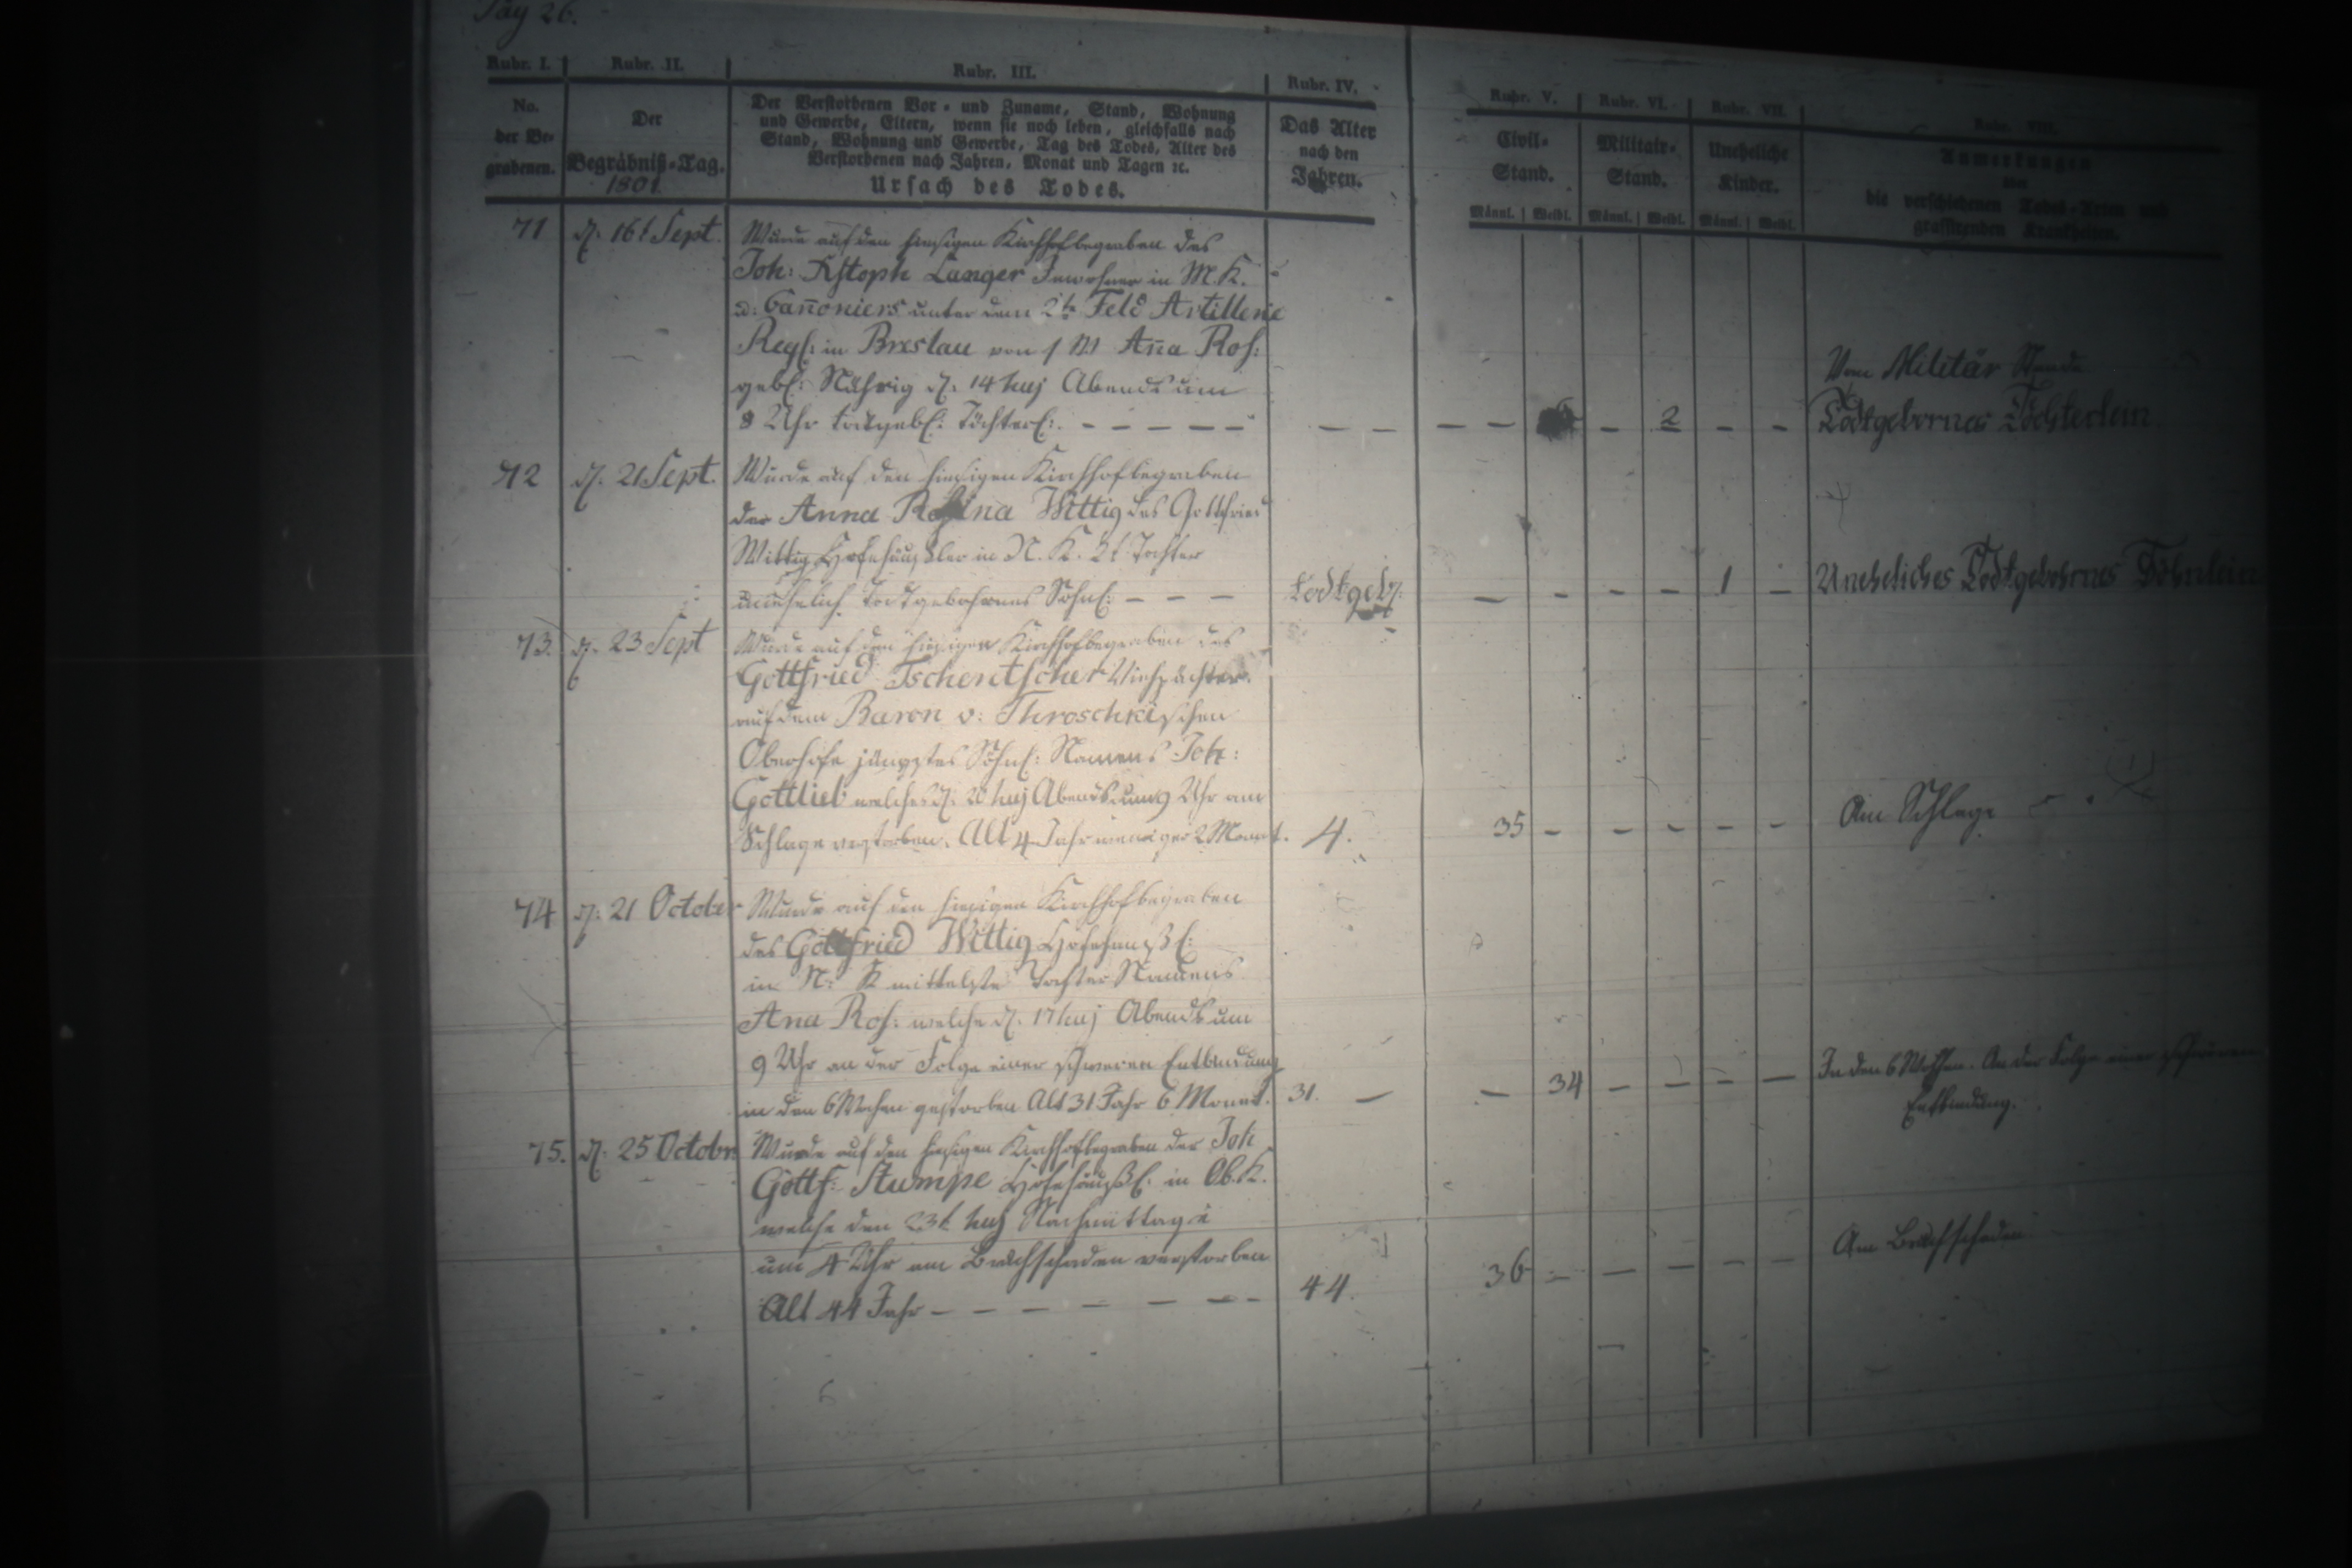 Pag 26.
Rubr. I. Rubr. II. Rubr. III. Rubr. IV. Rubr. V. Rubr. VI. Rubr. VII. Rubr. VIII.
No.
der Be-
grabenen.
Der
Begräbniß-Tag.
1801.
Der Verstorbenen Vor- und Zuname, Stand, Wohnung
und Gewerbe, Eltern, wenn sie noch leben, gleichfalls nach
Stand, Wohnung und Gewerbe, Tag des Todes, Alter des
Verstorbenen nach Jahren, Monat und Tagen ꝛc.
Ursach des Todes.
Das Alter
nach den
Jahren.
Civil-
Stand.
Männl. Weibl.
Militair-
Stand.
Männl. Weibl.
Uneheliche
Kinder.
Männl. Weibl.
Anmerkungen
die verschiedenen Todes-Arten und
grassirenden Krankheiten.
71 d. 16t Sept. Wurde auf den hiesigen Kirchhof begraben des
Joh: Xstoph Langer Inwohner in M. K.
u: Can̄oniers unter dem 2t Feld Artillerie
Reg: in Breslau von An̄a Ros:
geb: d. 14 huj Abends um
8 Uhr todtgeb: Töchterl: – – – – – – – – – – 2 – –
Vom Militär Stande
Todtgebornes Töchterlein
72 d. 21 Sept. Wurde auf den hiesigen Kirchhof begraben
der Anna Rosina Wittig des Gottfried
Wittig Hofehäusler in N. K. Tochter
unehelich todtgebohrnes Söhnl: – – – todtgeb. – – – – 1 – Uneheliches Todtgebohrnes Söhnlein
73. d. 23 Sept Wurde auf den hiesigen Kirchhof begraben des
Gottfried Tschentscher Viehpächter
auf dem Baron v: Throschkischen
Oberhofe jüngstes Söhnl: Namens Joh:
Gottlieb welches d. 20 huj Abends um 9 Uhr am
Schlage verstorben. Alt 4 Jahr weniger 2 Monat. 4. 35 – – – – – Am Schlage
74 d. 21 October Wurde auf den hiesigen Kirchhof begraben
des Gottfried Wittig Hofehäusl:
in N: K mittelste Tochter Namens
Ana Ros: welche d. 17 huj Abends um
9 Uhr an der Folge einer schweren Entbindung
in den 6 Wochen gestorben Alt 31 Jahr 6 Monat. 31. – – 34 – – – –
In den 6 Wochen. An der Folge einer schweren
Entbindung.
75. d. 25 Octobr. Wurde auf den hiesigen Kirchhof begraben der Joh
Gottf: Stumpe Hofehäusl: in Ob. K.
welche den 23t huj Nachmittags
um 4 Uhr am Bruchschaden verstorben
Alt 44 Jahr – – – – – – – 44. 36 – – – – – Am Bruchschaden